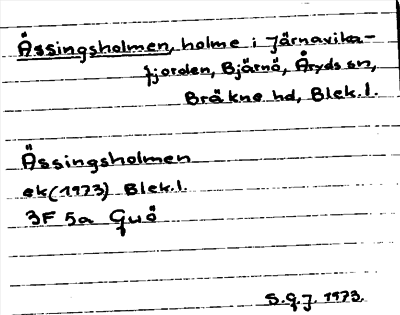 Ässingsholmen, holme i Järnavika-
fjorden, Bjärnö, Åryds sn,
Bräkne hd, Blek.l.
Ässingsholmen
ek(1973) Blek.l.
3F 5a Guö
S.g.J. 1973.